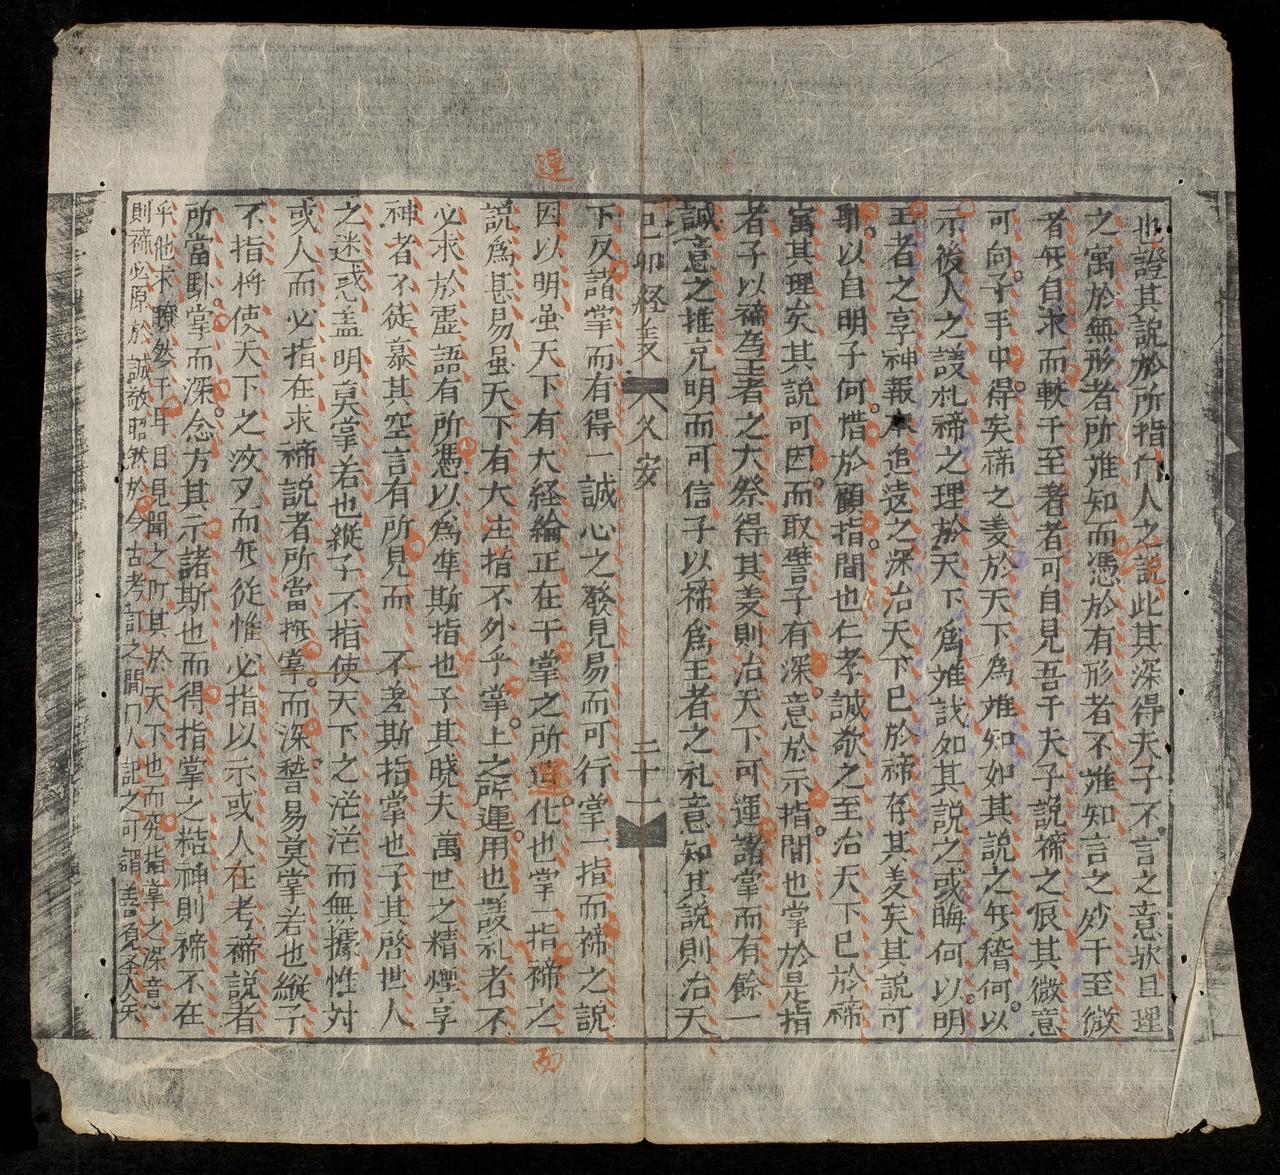 也證其說於所指門人之記此其深得夫子不言之意欤且理
之寓於無形者所难知而憑於有形者不难知言之妙于至微
者旡自求而較于至著者可自見吾于夫子說禘之辰其微意
可向子手中得矣禘之义於天下為难知如其說之旡稽何以
示後人之議礼禘之理於天下為难說如其說之或晦何以明
王者之享神報本追逺之深治天下已於禘存其义矣其說可
耶以自明子何惜於顧指間也仁孝誠敬之至治天下已於禘
寓其理矣其說可因而取譬子有深意於示指間也掌於是指
者子以禘為王者之大祭得其义則治天下可運諸掌而有餘一
誠意之推克明而可信子以禘爲王者之礼意知其說則治天
己卯経义 久安 二十一
下反諸掌而有得一誠心之發見易而可行掌一指而禘之說
因以明虽天下有大経綸正在于掌之所造化也掌一指禘之
說爲甚易虽天下有大注指不外乎掌上之所運用也議礼者不
必求於虚語有所憑以爲凖斯指也子其暁夫萬世之精煙享
神者不徒慕其空言有所見而 不差斯指掌也子其啓世人
之迷惑盖明莫掌若也縦子不指使天下之茫茫而無據性対
或人而必指在求禘說者所當撫掌而深嵆易莫掌若也縦子
不指将使天下之汝又而旡從惟必指以示或人在考禘說者
所當鼓掌而深念方其示諸斯也而得指掌之精神則禘不在
乎他求瞭然于耳目見聞之所其於天下也而究指掌之深意
則禘必原於誠敬昭然於今古考訂之間门人記之可謂善見圣人矣
運
而